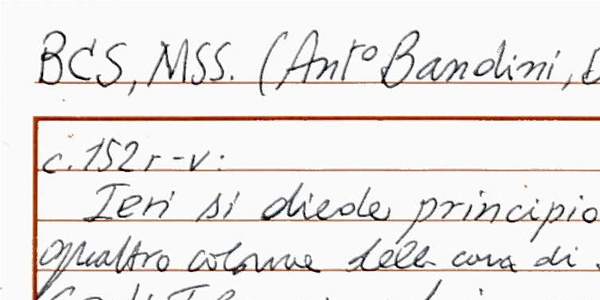 BCS, MSS. (Ant° Bandini,
c. 152 r-v:
Ieri si diede principio
quattro colonne della cava di